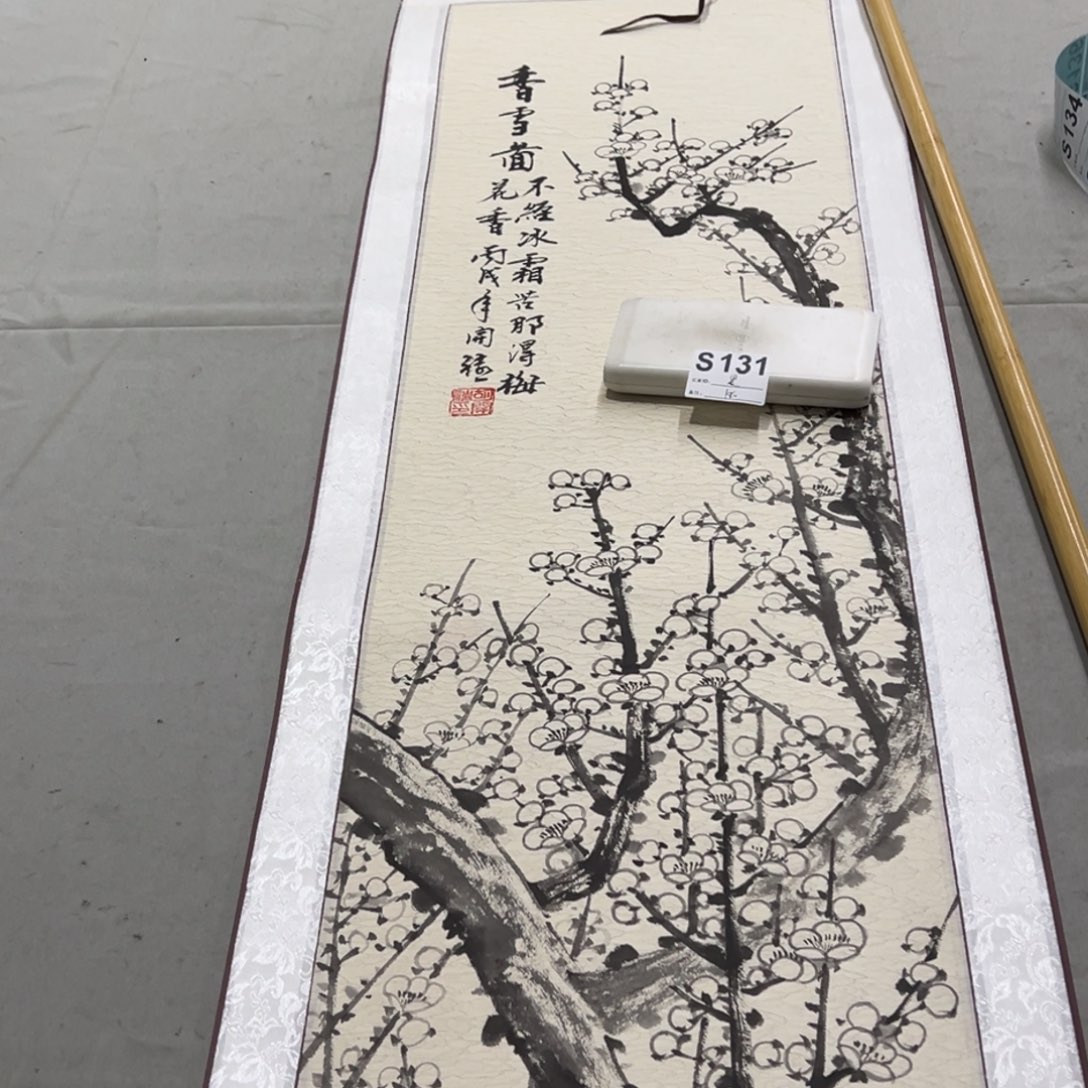 香雪啚
不經冰霜苦那得梅
花香丙戌年開
S131
S134